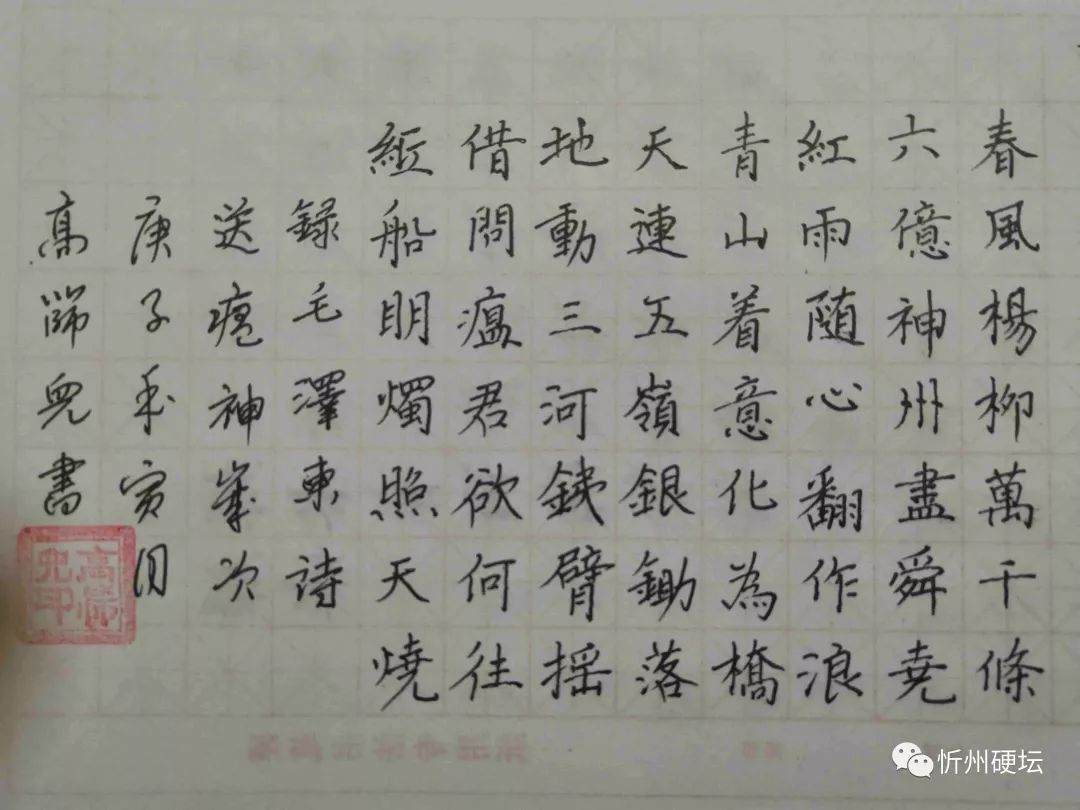 春風楊柳萬千條
六億神州盡舜堯
紅雨随心翻作浪
青山着意化為橋
天連五嶺銀鋤落
地動三河銕臂摇
借問瘟君欲何往
紙船明燭照天燒
録毛澤東詩
送瘟神歲次
庚子年寅月
高兒書
忻州硬坛